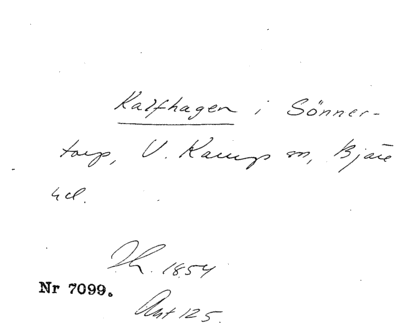 Kalfhagen i Sönner-
torp, V. Karup sn, Bjäre
hd.
Th. 1854
Nr 7099.
Ant 125.